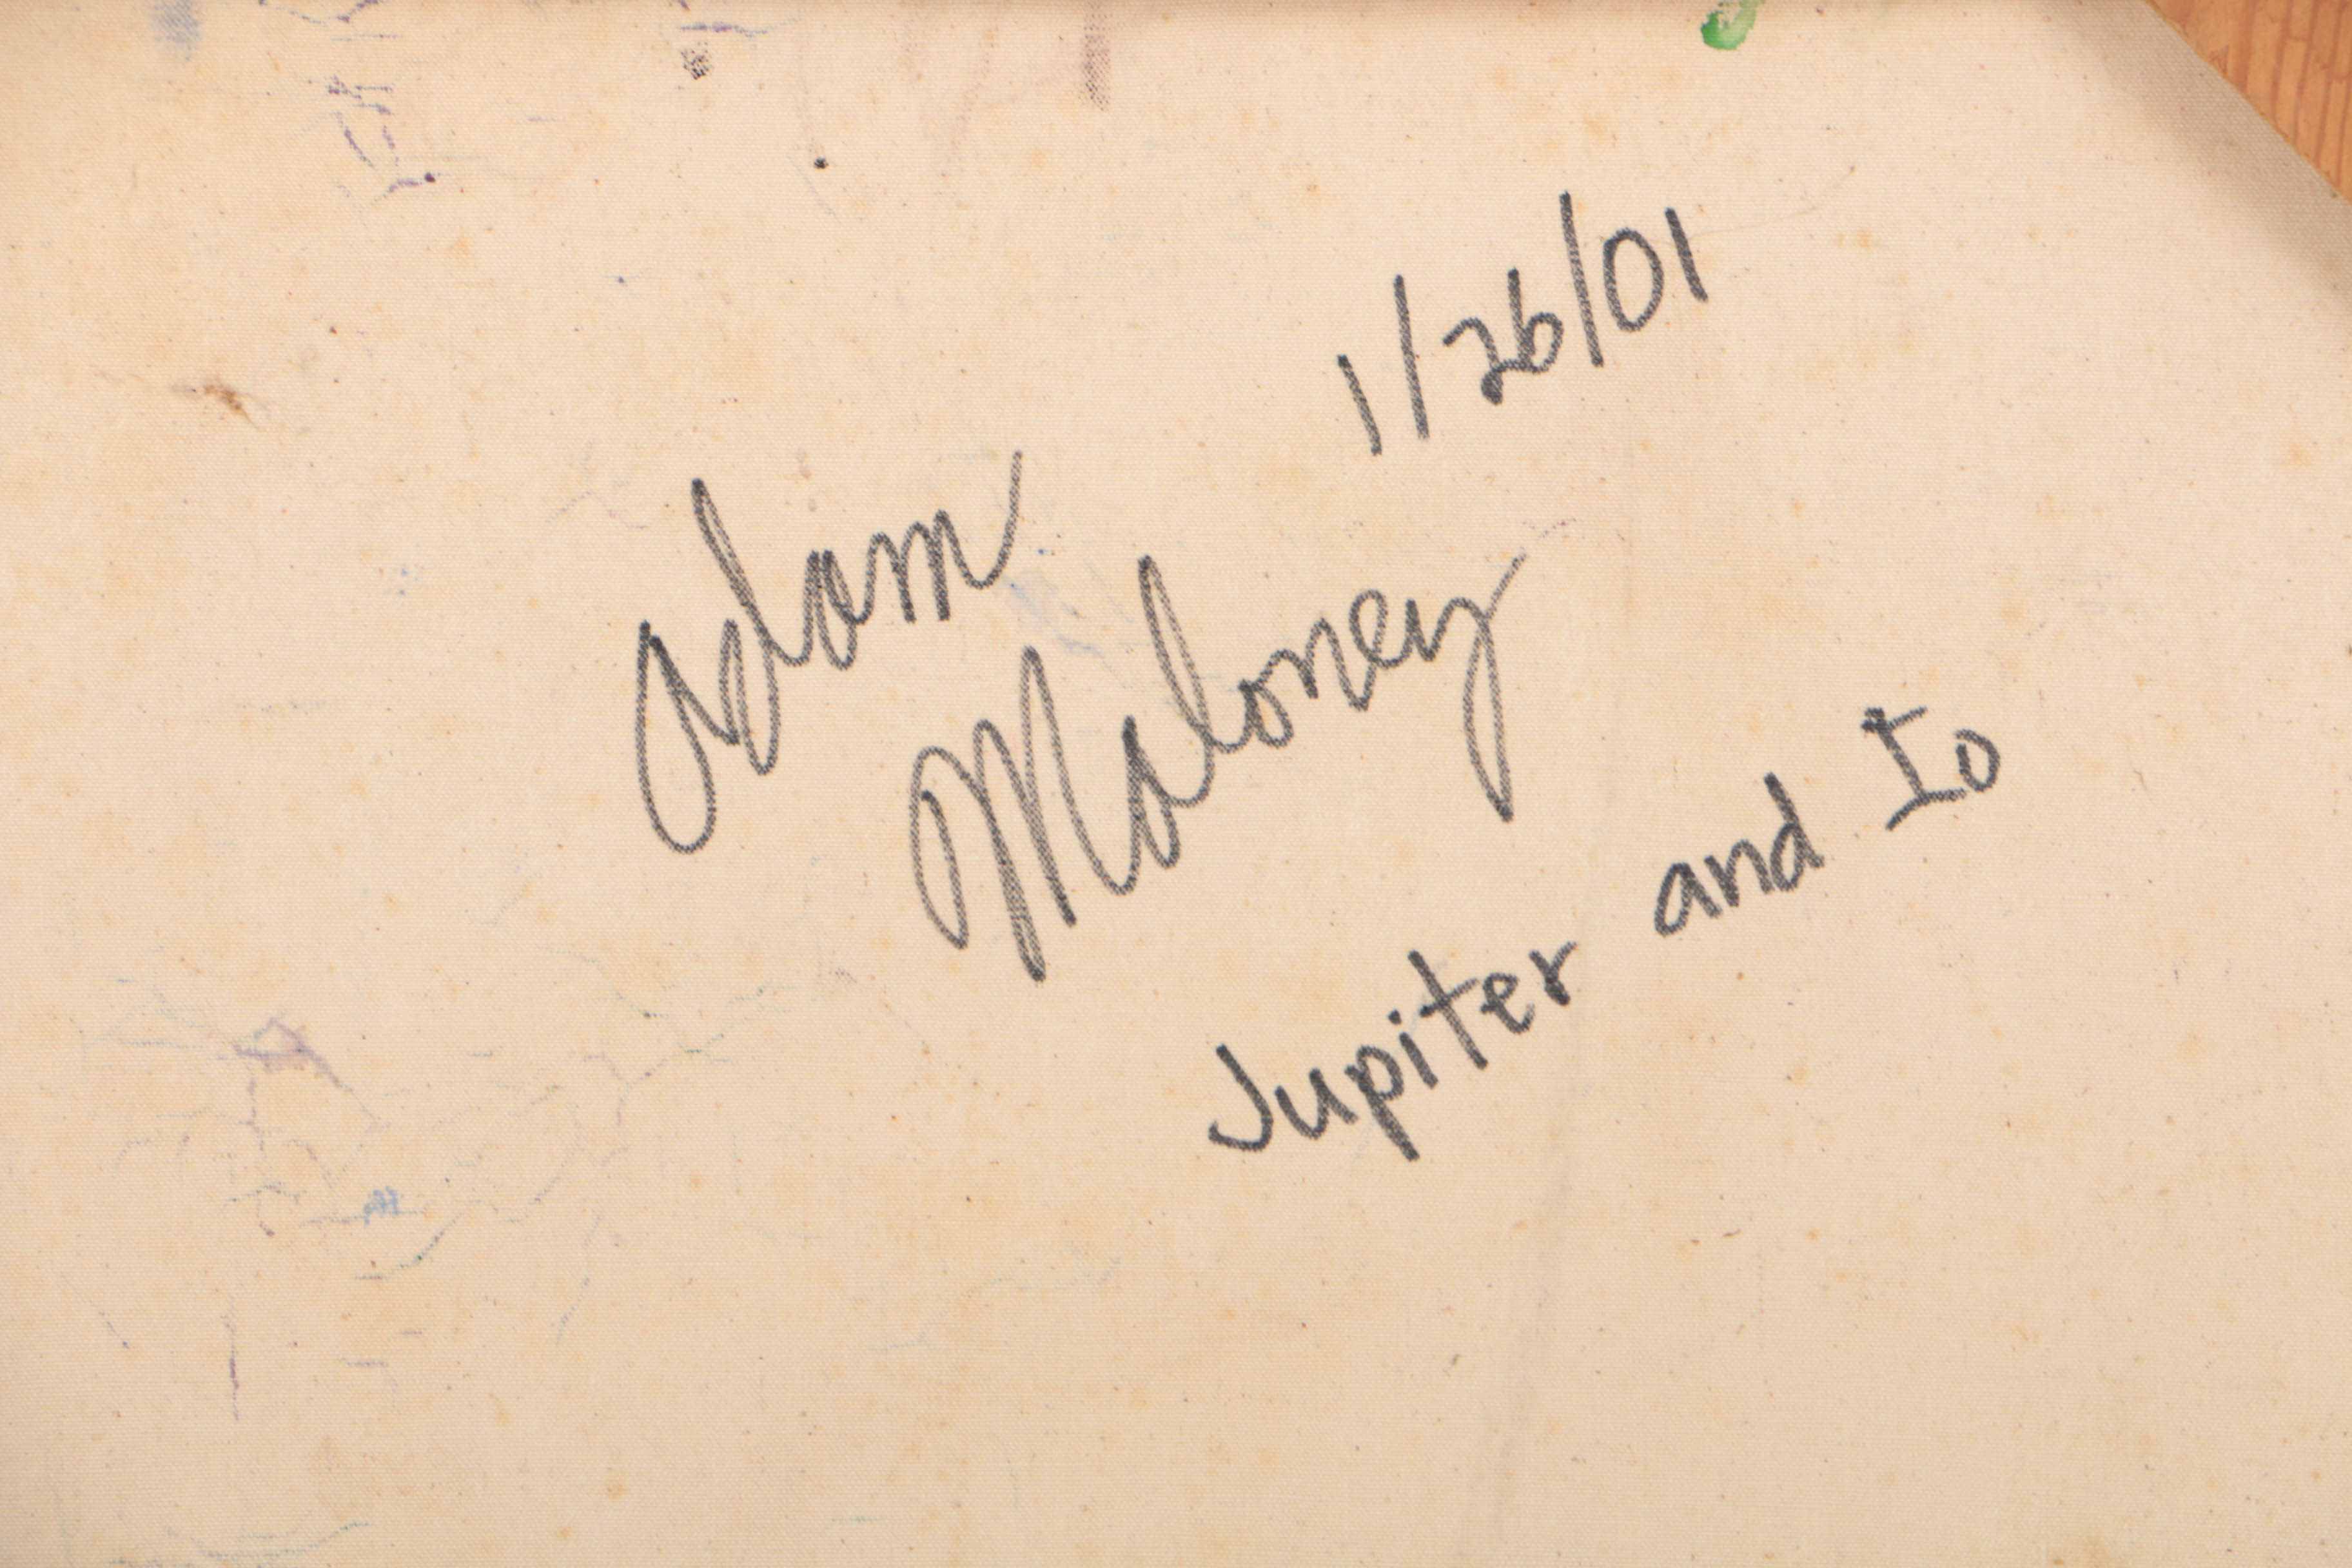 1/26/01
Adam
Maloney
Jupiter and Io